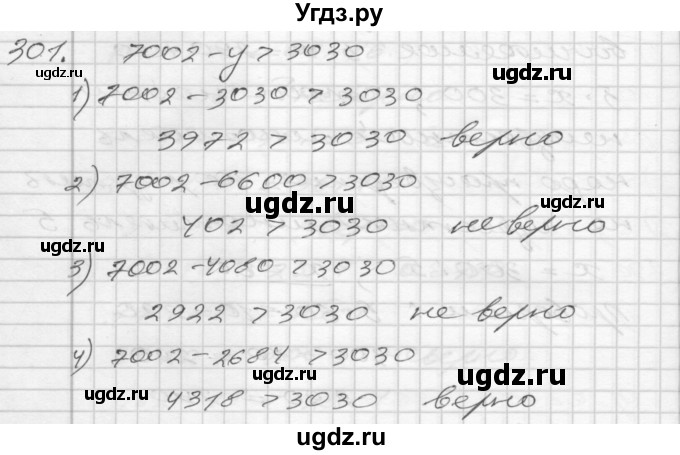 Угдз.ру
301. 7002-y>3030
ugdz.ru
ugdz.ru
1) 7002-3030>3030
ugdz.ru
3972>3030 верно
2) 7002-6600>3030
ugdz.ru
402>3030 не верно
ugdz.ru
ugdz.ru
3) 7002-4080>3030
2922>3030 не верно
4) 7002-2684>3030
ugdz.ru
ugdz.ru
4318>3030 верно
ugdz.ru